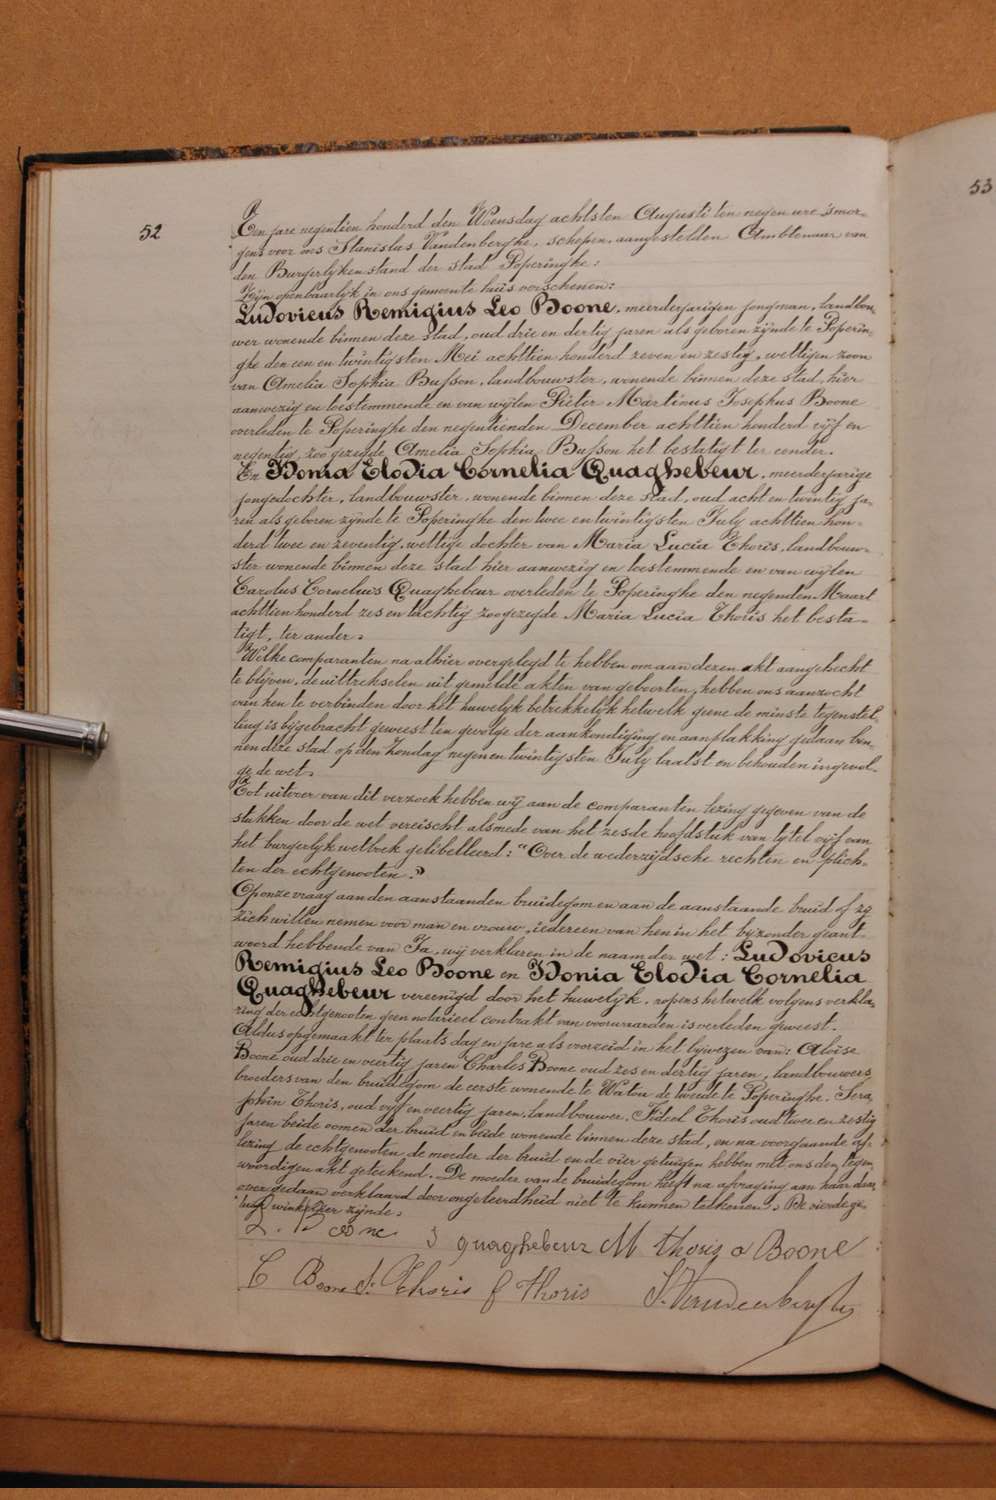 52
53
Ten jare negentien honderd den Woensdag achtsten Augusti ten negen ure 's mor-
gens voor ons Stanislas Vandenberghe, schepen, aangestelden Ambtenaar van
den Burgerlyken stand der stad Poperinghe:
Zyn openbaarlyk in ons gemeente huis verschenen:
Ludovicus Remigius Leo Boone, meerderjarigen jongman, landbou-
wer wonende binnen deze stad, oud drie en dertig jaren als geboren zynde te Poperin-
ghe den een en twintigsten Mei achttien honderd zeven en zestig, wettigen zoon
van Amelia Sophia Busson, landbouwster, wonende binnen deze stad, hier
aanwezig en toestemmende en van wylen Pieter Martinus Josephus Boone
overleden te Poperinghe den negentienden December achttien honderd vyf en
negentig, zoo gezegde Amelia Sophia Busson het bestatigt ter eender.
En Idonia Elodia Cornelia Quaghebeur, meerderjarige
jongedochter, landbouwster, wonende binnen deze stad, oud acht en twintig ja-
ren als geboren zynde te Poperinghe den twee en twintigsten July achttien hon-
derd twee en zeventig, wettige dochter van Maria Lucia Thoris, landbouw-
ster wonende binnen deze stad hier aanwezig en toestemmende en van wylen
Carolus Cornelius Quaghebeur overleden te Poperinghe den negenden Maart
achttien honderd zes en tachtig zoogezegde Maria Lucia Thoris het besta-
tigt, ter ander.
Welke comparanten na alhier overgelegd te hebben om aan dezen akt aangehecht
te blijven, de uittrekselen uit gemelde akten van geboorten, hebben ons aanzocht
van hen te verbinden door het huwelyk betrekkelyk hetwelk geene de minste tegenstel-
ling is bygebracht geweest ten gevolge der aankondiging en aanplakking gedaan bin-
nen deze stad op den Zondag negen en twintigsten July laatst en behouden ingevol-
ge de wet.
Tot uitvoer van dit verzoek hebben wy aan de comparanten lezing gegeven van de
stukken door de wet vereischt alsmede van het zesde hoofdstuk van tytel vyf van
het burgerlyk wetboek gelibelleerd: "Over de wederzydsche rechten en plich-
ten der echtgenooten."
Op onze vraag aan den aanstaanden bruidegom en aan de aanstaande bruid of zy
zich willen nemen voor man en vrouw, iedereen van hen in het byzonder geant-
woord hebbende van Ja, wy verklaren in de naam der wet: Ludovicus
Remigius Leo Boone en Idonia Elodia Cornelia
Quaghebeur vereenigd door het huwelyk, nopens hetwelk volgens verkla-
ring der echtgenooten geen notarieel contrakt van voorwaarden is verleden geweest.
Aldus opgemaakt ter plaats dag en jare als voorzeid in het bywezen van: Aloise
Boone oud drie en veertig jaren Charles Boone oud zes en dertig jaren, landbouwers
broeders van den bruidegom de eerste wonende te Watou de tweede te Poperinghe, Sera-
phin Thoris, oud vyf en veertig jaren, landbouwer, Fideel Thoris oud twee en zestig
jaren beide oomen der bruid en beide wonende binnen deze stad, en na voorgaande af-
lezing de echtgenooten, de moeder der bruid en de vier getuigen hebben met ons den tegen-
woordigen akt geteekend. De moeder van de bruidegom heeft na afvraging aan haar daar-
over gedaan verklaard door ongeleerdheid niet te kunnen teekenen. De vierde ge-
tuige winkelier zynde.
L. Boone I quaghebeur M thoris a Boone
C Boone S. Thoris f thoris S. Vandenberghe